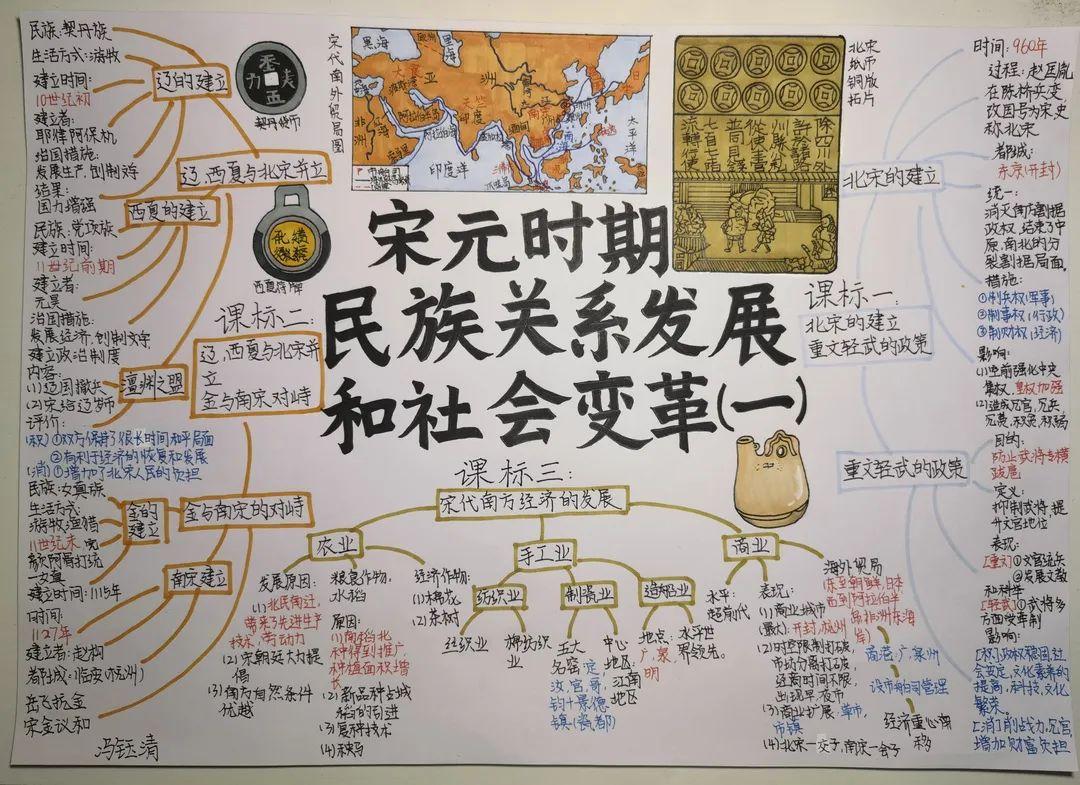 宋元时期
民族关系发展
和社会变革(一)
课标一:
北宋的建立
重文轻武的政策
北宋的建立
时间: 960年
过程: 赵匡胤
在陈桥兵变
改国号为宋史
称北宋
都城:
东京(开封)
统一:
消灭南方割据
政权,结束了中
原,南北的分
裂割据局面。
措施:
①制兵权(军事)
②制事权(行政)
③制财权(经济)
影响:
(1)空前强化中央
集权,皇权加强
(2)造成冗官,冗兵,
冗费,积贫,积弱
重文轻武的政策
目的:
防止武将专横
跋扈
定义:
抑制武将,提
升文官地位
表现:
[重文] ①文官统兵
②发展文教
和科举
[轻武] ①武将多
方面受牵制
影响:
[积] 政权稳固,社
会安定,文化素养的
提高,科技,文化
繁荣。
[消] 削战力,冗官,
增加财富负担
课标二:
辽,西夏与北宋并
立
金与南宋对峙
辽,西夏与北宋并立
辽的建立
民族:契丹族
生活方式:游牧
建立时间:
10世纪初
建立者:
耶律阿保机
治国措施:
发展生产,创制文字
结果:
国力增强
西夏的建立
民族:党项族
建立时间:
11世纪前期
建立者:
元昊
治国措施:
发展经济,创制文字
建立政治制度
澶渊之盟
内容:
(1)辽国撤兵
(2)宋给辽岁币
评价:
(积) ①双方保持了很长时间和平局面
②有利于经济的恢复和发展
(消) ①增加了北宋人民的负担
金与南宋的对峙
金的
建立
民族:女真族
生活方式:
游牧渔猎
11世纪末,完
颜阿骨打统
一女真
建立时间:1115年
南宋建立
时间:
1127年
建立者:赵构
都城:临安(杭州)
岳飞抗金
宋金议和
冯钰清
契丹货币
西夏腰牌
宋代海外贸易图
黑海
里海
亚
洲
非
洲
印度
印度洋
太平洋
北宋
纸币
铜版
拓片
除四川外
许於诸路州
县公私
从便主管
并同见钱
七百七十陌
流转行使
课标三:
宋代南方经济的发展
农业
发展原因:
(1)北民南迁,
带来了先进生产
技术,劳动力
(2)宋朝廷大力提
倡
(3)南方自然条件
优越
粮食作物:
水稻
原因:
(1)南稻北
种得到推广,
种植面积增
(2)新品种占城
稻的引进
(3)复种技术
(4)秧马
经济作物:
(1)棉花
(2)茶树
手工业
纺织业
丝织业
棉纺织
业
制瓷业
五大
名窑:定,
汝,官,哥,
钧+景德
镇(瓷都)
中心
地区:
江南
地区
造船业
地点:
广,泉,
明
水平世
界领先。
商业
水平:
超前代
表现:
(1)商业城市
(最大):开封,杭州
(2)时空限制打破,
市坊分离打破,
经商时间不限,
出现早,夜市
(3)商业扩展:草市,
市镇
(4)北宋—交子,南宋—会子
海外贸易
(东至朝鲜,日本
西到阿拉伯半
岛非洲东海
岸)
商港:广,泉州
设市舶司管理
经济重心南
移